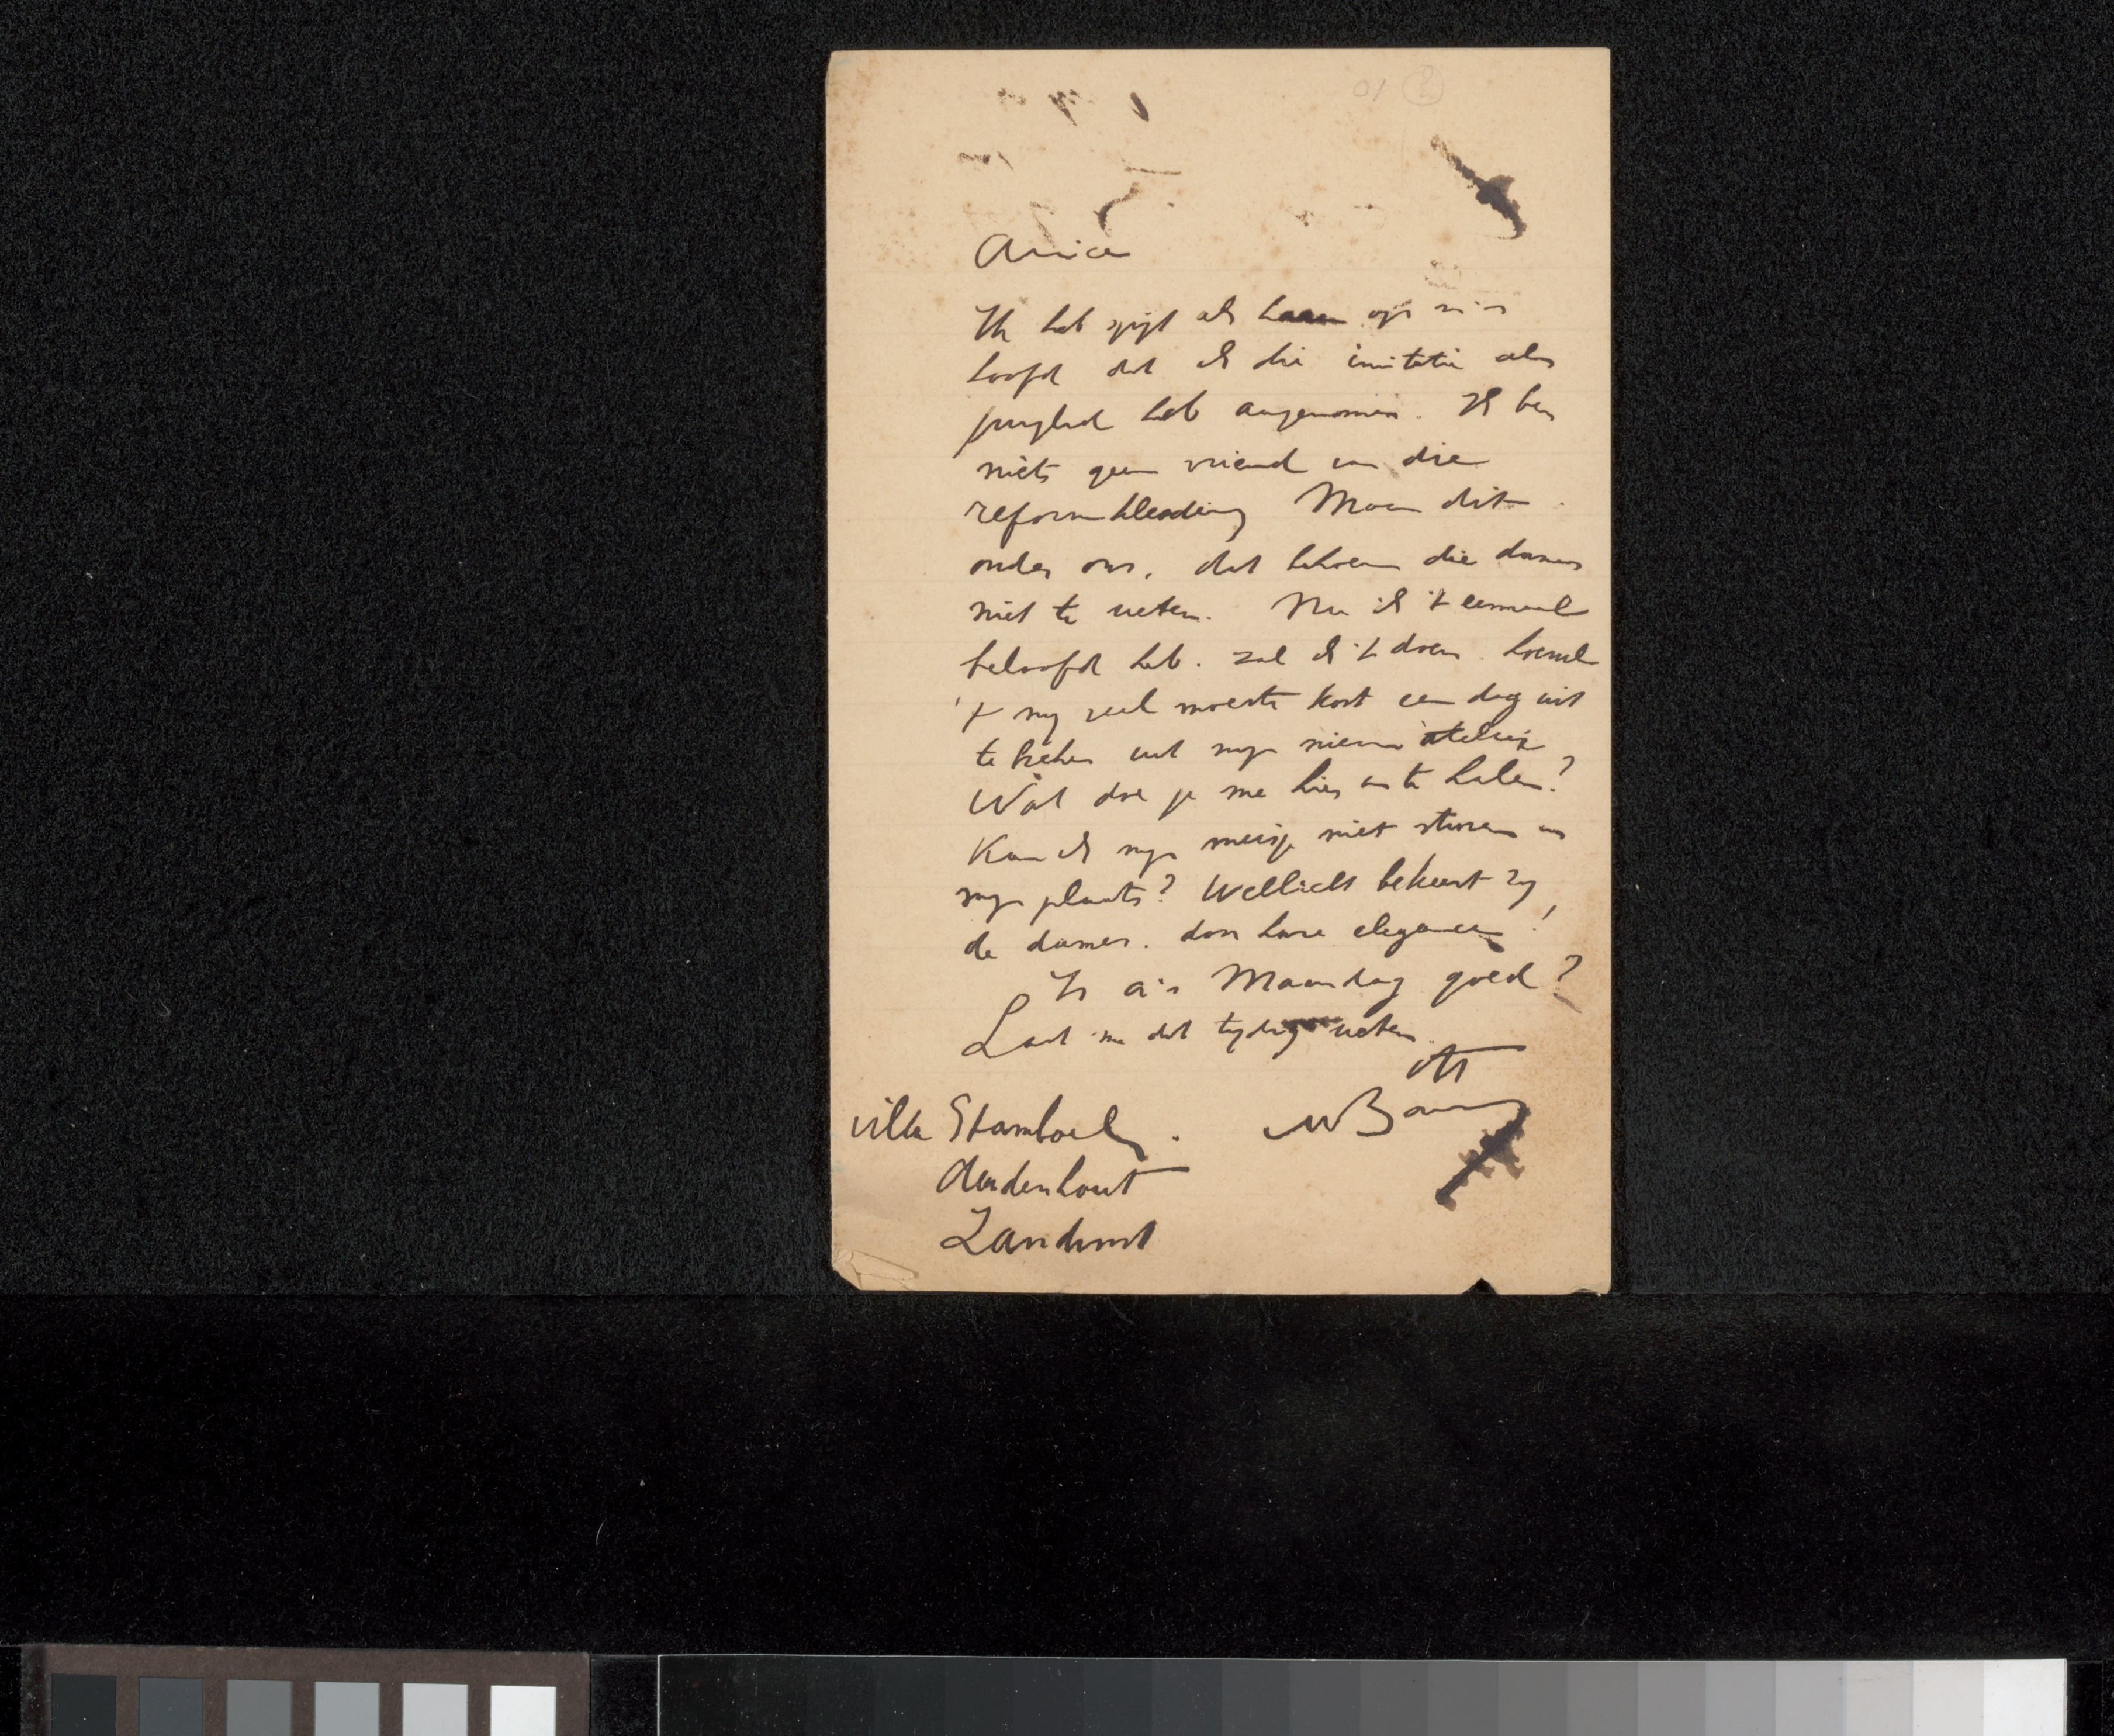 01 2
Amice
Ik heb spijt als haren op m'n
hoofd dat ik die invitatie als
jurylid heb aangenomen. Ik ben
niets geen vriend van die
reformkleeding Maar dit
onder ons, dat behoeven die dames
niet te weten. Nu ik 't eenmaal
beloofd heb. zal ik 't doen. hoewel
't mij veel moeite kost een dag uit
te breken uit mijn nieuw atelier
Wat doe je me hier in te halen?
Kan ik mijn meisje niet sturen in
mijn plaats? Wellicht bekeert zij
de dames. door hare elegance!
Is a.s Maandag goed?
Laat me dat tijdig weten
tt
villa Stamboel.
Aerdenhout
Zandvoort